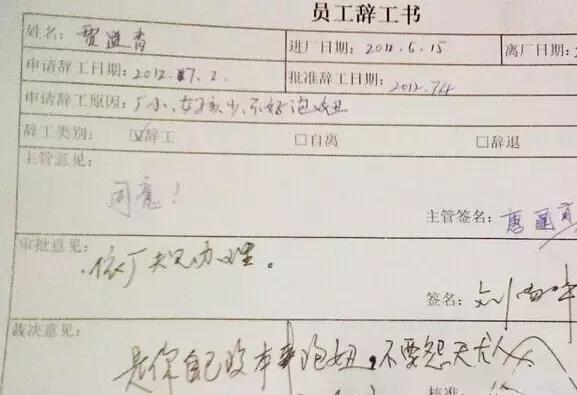 员工辞工书
姓名: 贾进青 进厂日期: 2012.6.15 离厂日期:
申请辞工日期: 2012.7.2. 批准辞工日期: 2012.7.4
申请辞工原因: 厂小、女孩少、不好泡妞
辞工类别: ☑辞工 □自离 □辞退
主管意见:
同意!
主管签名: 唐
审批意见:
依厂规办理。
签名: 刘
裁决意见:
是你自己没本事泡妞,不要怨天尤人
核准: